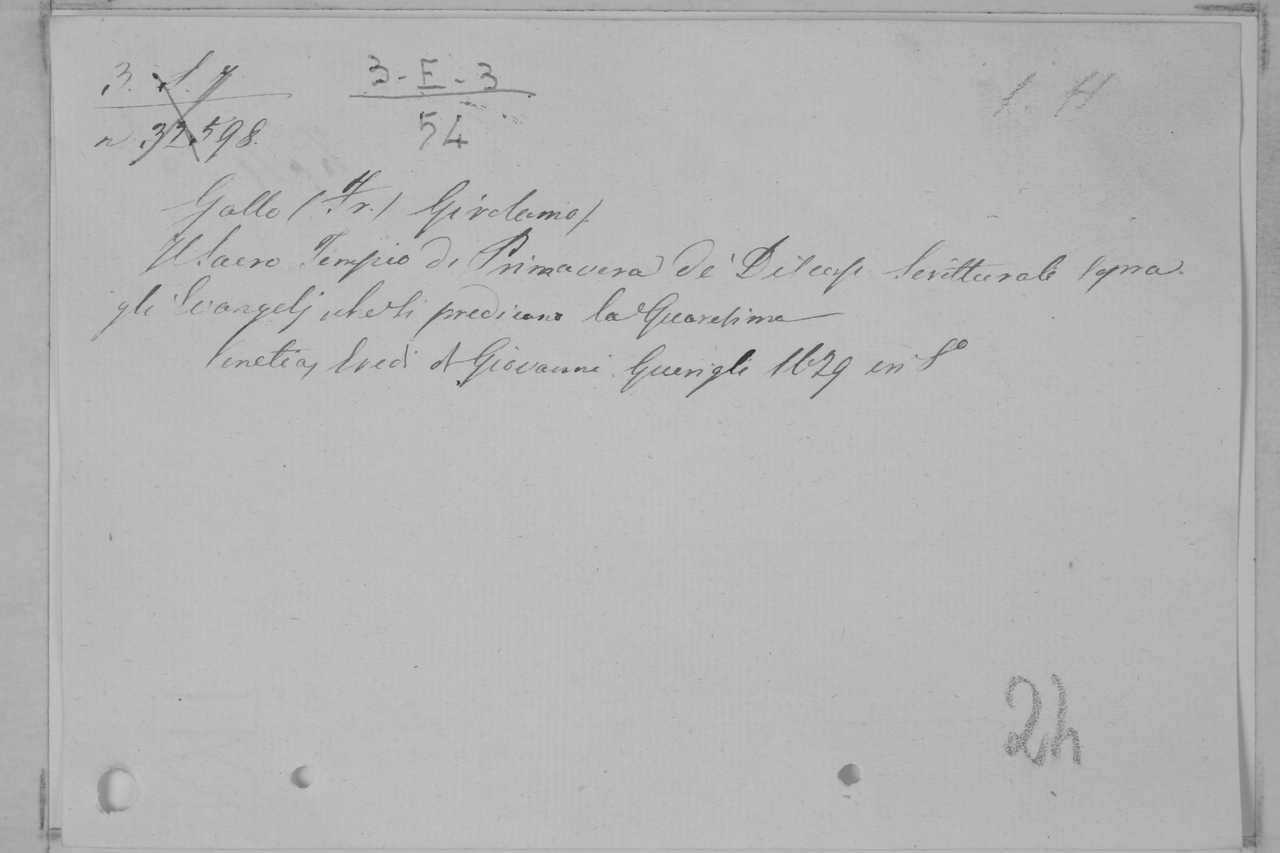 3. S. 7
3-E-3
S. H
n 32.598.
54
Gallo (Fr.) Girolamo/.
Il Sacro Tempio di Primavera de' Discorsi Scritturali sopra
gli Evangelj che si predicano la Quaresima
Venetia, Eredi di Giovanni Guerigli 1629 in 8º
2h